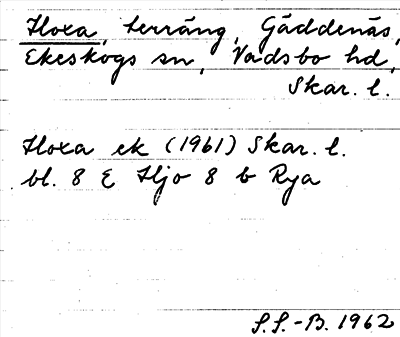 Hoxa, terräng, Gäddenäs,
Ekeskogs sn, Vadsbo hd,
Skar. l.
Hoxa ek (1961) Skar. l.
bl. 8 E Hjo 8 b Rya
S.S.-B. 1962